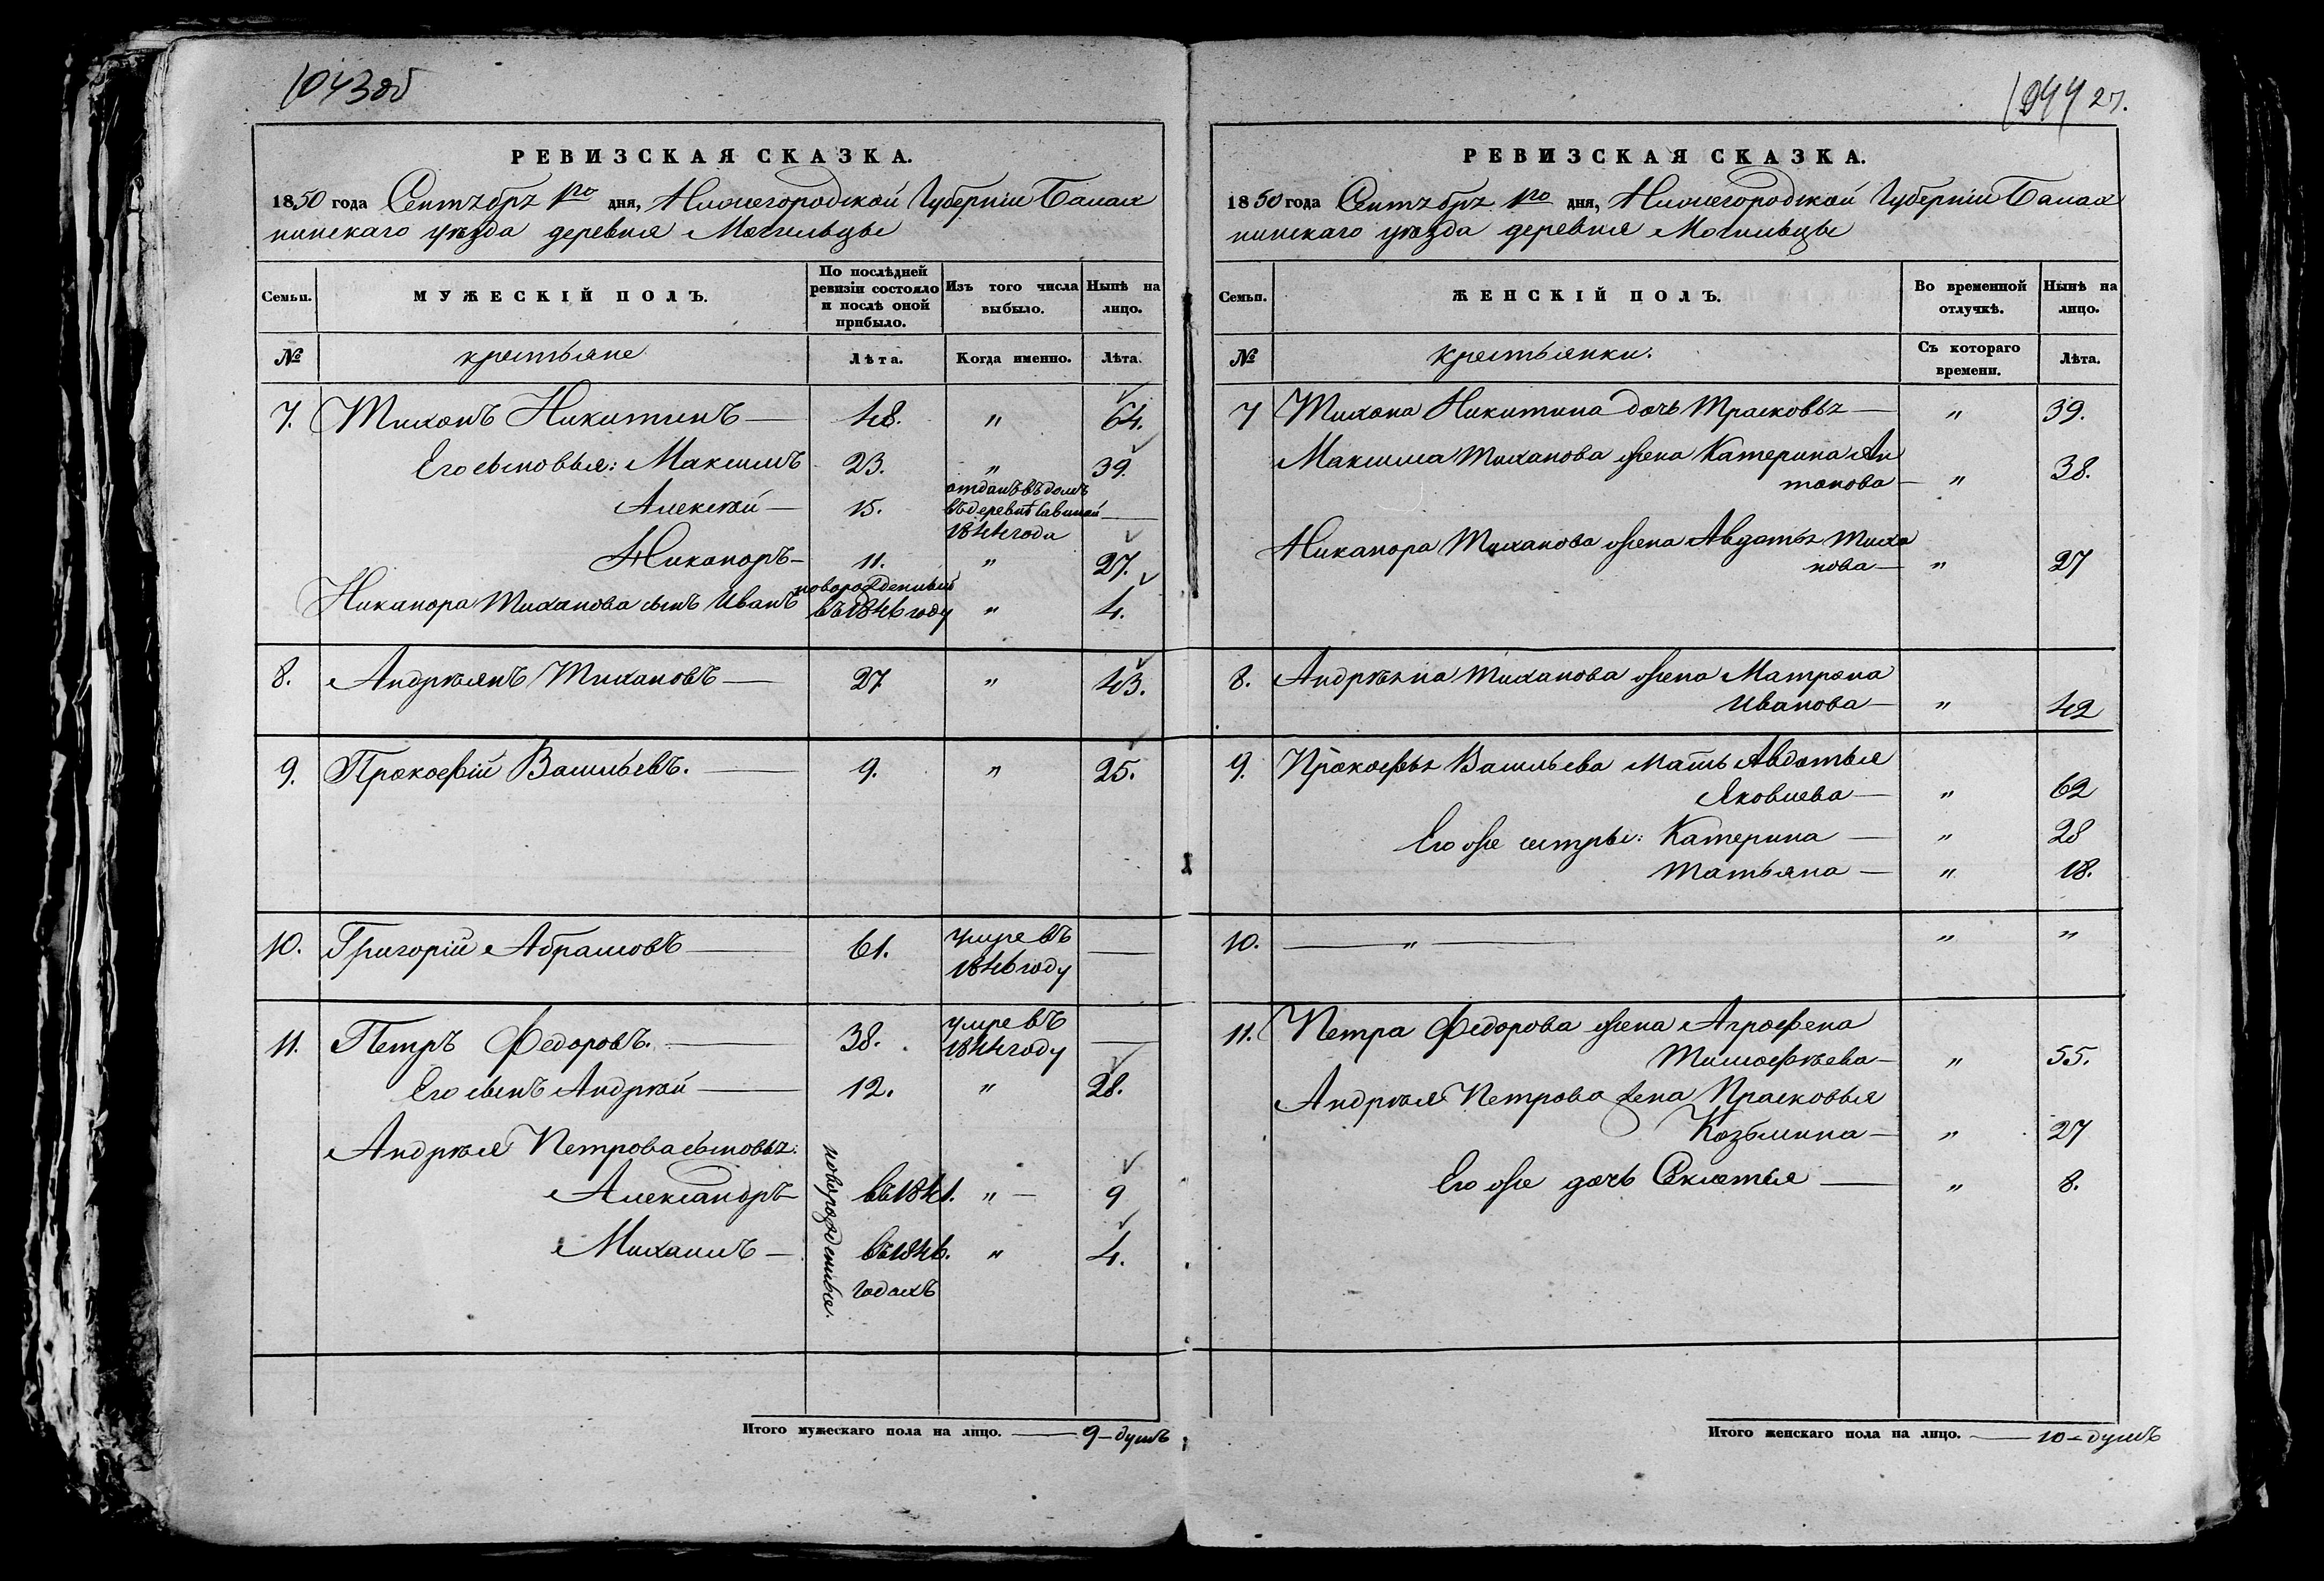 1043об
РЕВИЗСКАЯ СКАЗКА.
1850 года Сентября 1го дня, Нижегородской Губерніи Балах
нинскаго уѣзда деревня Могильцы
Семьи. МУЖЕСКІЙ ПОЛЪ. По послѣдней ревизіи состояло и послѣ оной прибыло. Изъ того числа выбыло. Нынѣ на лицо.
№ крестьяне Лѣта. Когда именно. Лѣта.
7. Тихонъ Никитинъ — 48. " 64.
Его сыновья: Максимъ 23. " 39.
Алексѣй — 15. отданъ въ домъ
въ деревнѣ —
1844 года
Никаноръ — 11. " 27.
Никанора Тиханова сынъ Иванъ новорожденный
въ 1846 году " 4.
8. Андреянъ Тихановъ — 27 " 43.
9. Прокофій Васильевъ. — 9. " 25.
10. Григорій Абрамовъ — 61. умре въ
1846 году —
11. Петръ Федоровъ. — 38. умре въ
1844 году —
Его сынъ Андрѣй — 12. " 28.
Андрѣя Петрова сыновья:
новорожденныя.
Александръ — въ 1841. " — 9
Михаилъ — въ 1846. " 4.
годахъ
Итого мужескаго пола на лицо. — 9 – душъ
1044 27.
РЕВИЗСКАЯ СКАЗКА.
1850 года Сентября 1го дня, Нижегородской Губерніи Балах
нинскаго уѣзда деревня Могильцы
Семьи. ЖЕНСКІЙ ПОЛЪ. Во временной отлучкѣ. Нынѣ на лицо.
№ Крестьянки. Съ котораго времени. Лѣта.
7 Тихона Никитина дочь Прасковья — " 39.
Максима Тиханова жена Катерина Ан
тонова — " 38.
Никанора Тиханова жена Авдотья Тиха
нова — " 27
8. Андрѣяна Тиханова жена Матрона
Иванова — " 42
9. Прокофья Васильева мать Авдотья
Яковлева — " 62
Его же сестры: Катерина — " 28
Татьяна — " 18.
10. — " — " "
11. Петра Федорова жена Аграфена
Тимофѣева — " 55.
Андрѣя Петрова жена Прасковья
Козьмина — " 27
Его же дочь Секлетья — " 8.
Итого женскаго пола на лицо. — 10 – душъ